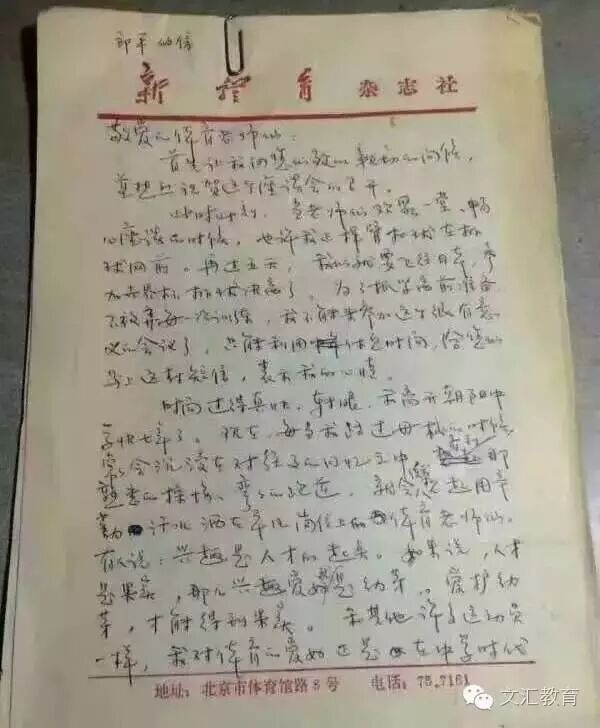 郎平的信
新体育 杂志社
敬爱的体育老师们：
首先让我向您们致以亲切的问候，
并想且祝贺这个座谈会的召开。
此时此刻，当老师们欢聚一堂、畅
心座谈的时候，也许我正挥臂扣球在排
球网前。再过五天，我们就要飞往日本，参
加世界杯排球决赛了。为了抓紧赛前准备
不放弃每一次训练，我不能来参加这个很有意
义的会议了，只能利用休息时间，给您们
写上这封短信，表示我的心情。
时间过得真快，转眼，我离开朝阳中
学快七年了。现在，每当我路过母校的时候，
常常会沉浸在对往事的回忆之中。那
熟悉的操场、弯弯的跑道，都会想起用辛
勤汗水洒在平凡岗位上的体育老师们。
有人说：兴趣是人才的起点。如果说，人才
是果实，那么兴趣爱好是幼芽。爱护幼
芽，才能得到果实。和其他许多运动员
一样，我对体育的爱好还是在中学时代
地址：北京市体育馆路8号 电话：75.7161
文汇教育